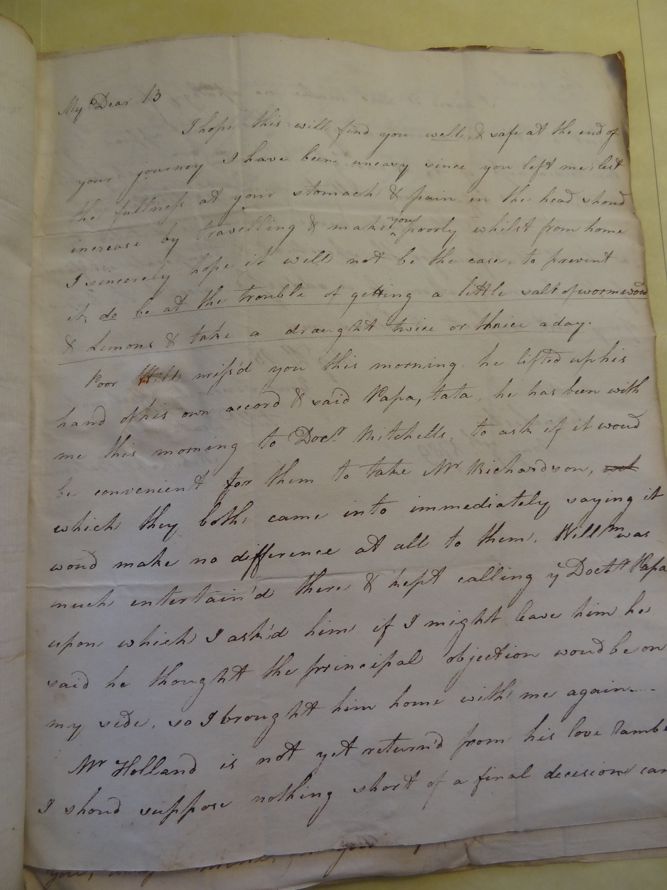 My Dear B
I hope this will find you well & safe at the end of
your journey I have been uneasy since you left me, lest
the fullness at your stomach & pain in the head shoud
increase by travelling & make you poorly whilst from home
I sincerely hope it will not be the case, to prevent
it do be at the trouble of getting a little salt of wormwood
& Lemons & take a draught twice or thrice a day.
Poor Will miss'd you this morning he lifted up his
hand of his own accord & said Papa, tata, he has been with
me this morning to Doctr Mitchells, to ask if it woud
be convenient for them to take Mr Richardson,
which they both came into immediately saying it
woud make no difference at all to them. Willm was
much entertain'd there & kept calling ye Doctr Papa
upon which I ask'd him if I might leave him he
said he thought the principal objection woud be on
my side, so I brought him home with me again.
Mr Holland is not yet return'd from his love ramble
I shoud suppose nothing short of a final decision can